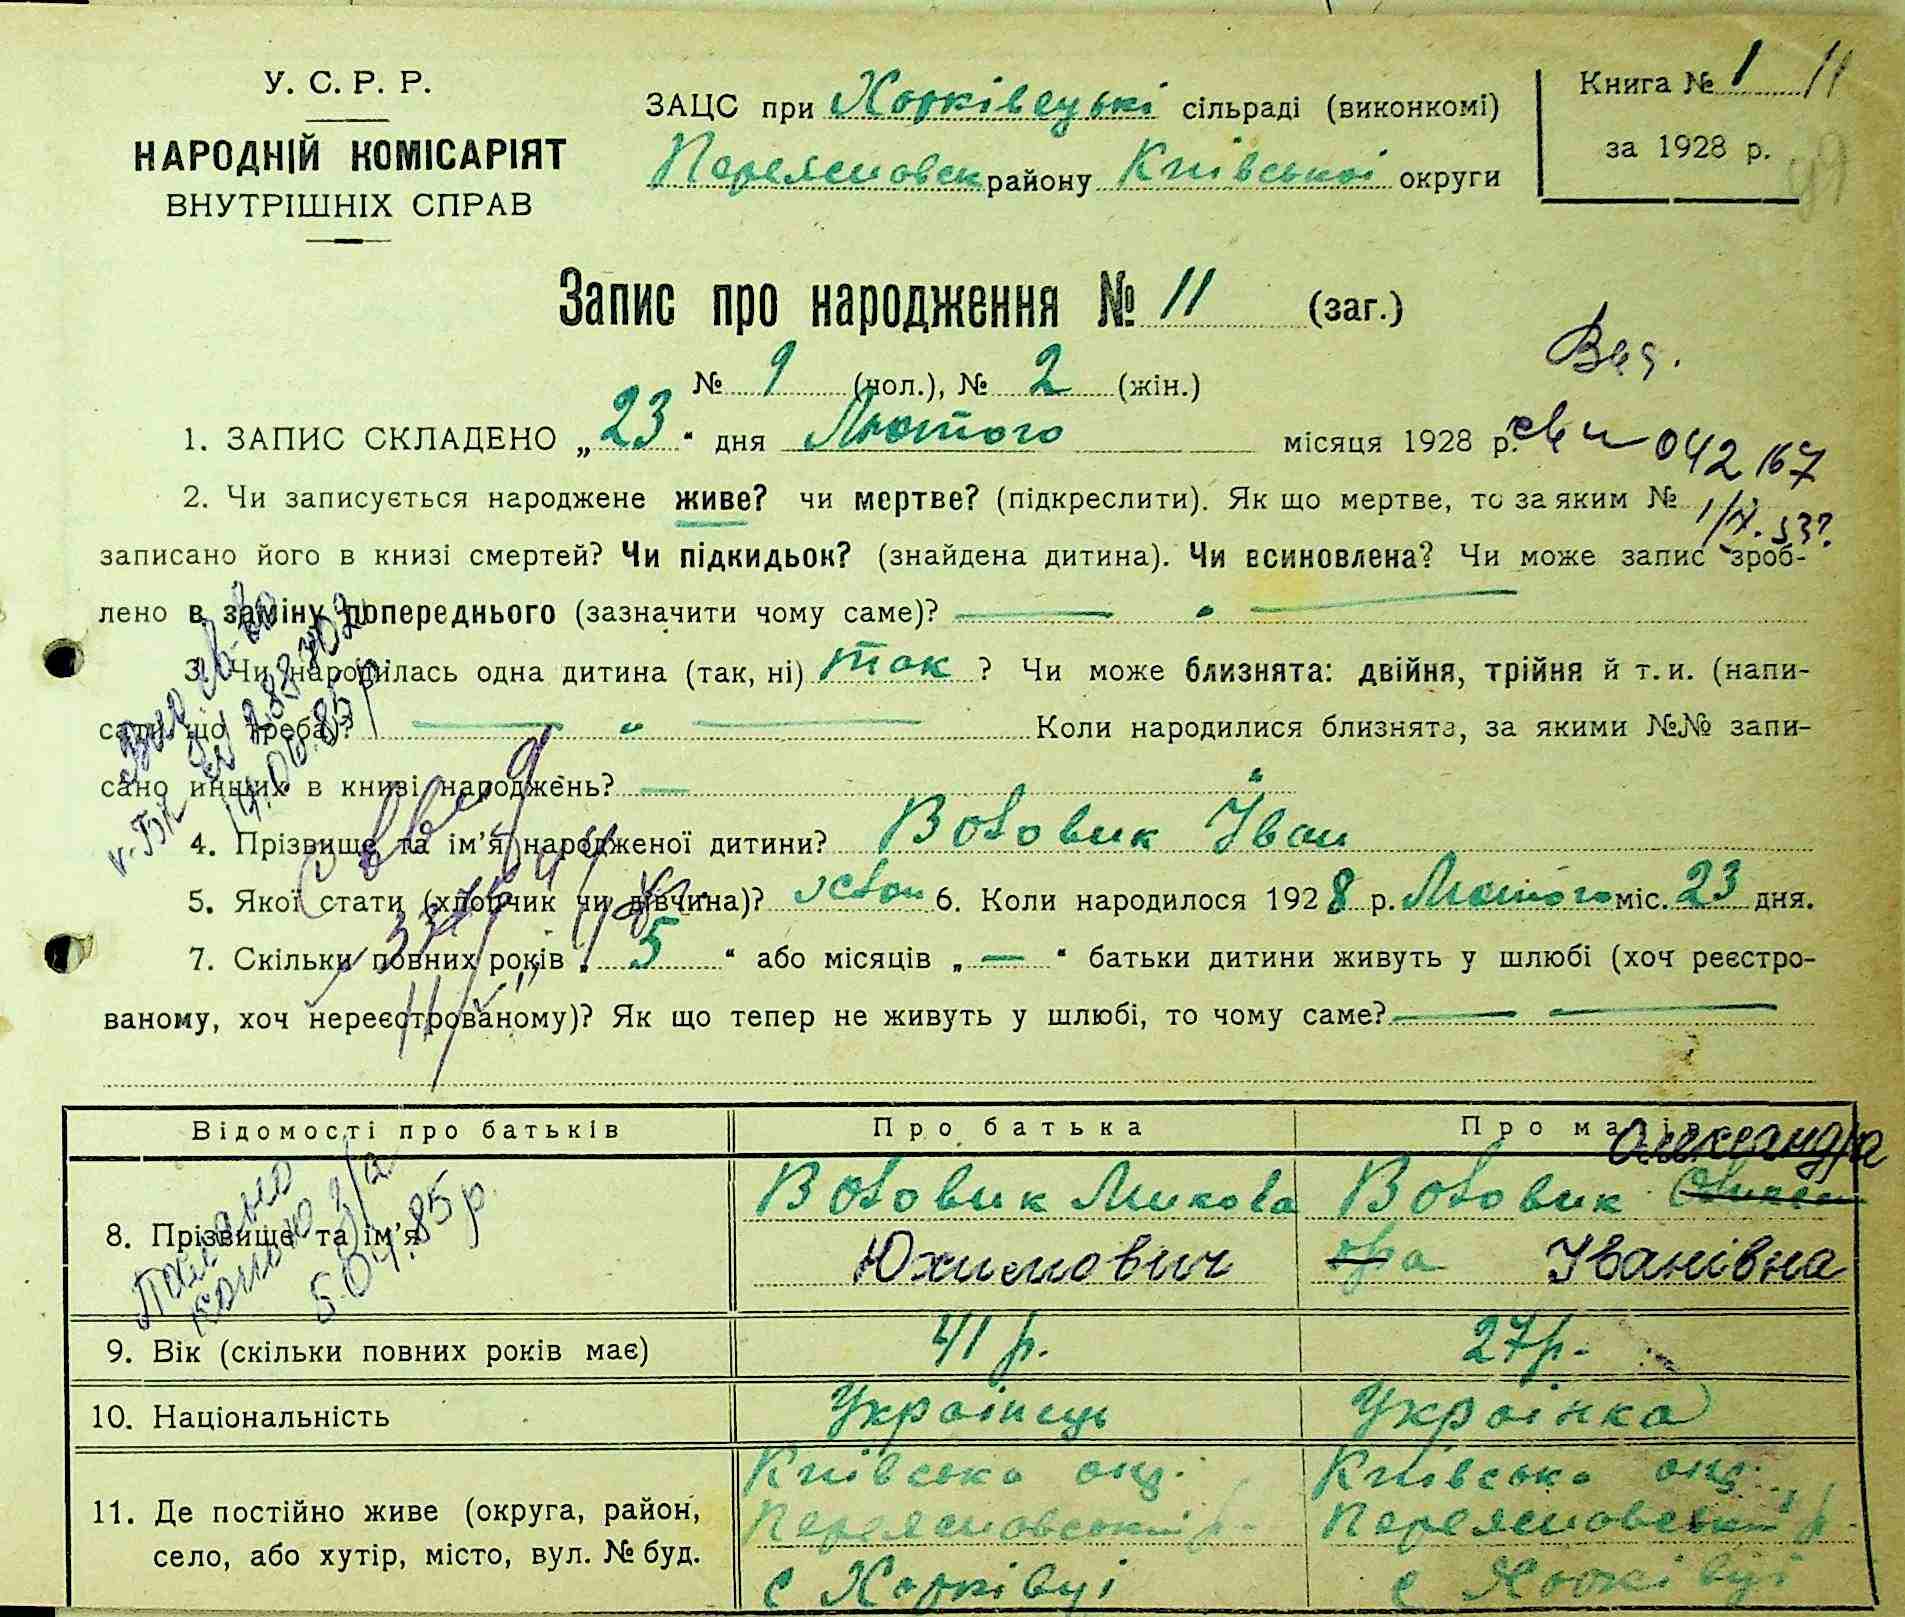 У. С. Р. Р.
НАРОДНІЙ КОМІСАРІЯТ
ВНУТРІШНІХ СПРАВ
ЗАЦС при Харківецькі сільраді (виконкомі)
Переясловск району Київської округи
Книга № 1 11
за 1928 р.
Запис про народження № 11 (заг.)
№ 9 (чол.), № 2 (жін.)
1. ЗАПИС СКЛАДЕНО „23“ дня Лютого місяця 1928 р.
042167
2. Чи записується народжене живе? чи мертве? (підкреслити). Як що мертве, то за яким №
записано його в книзі смертей? Чи підкидьок? (знайдена дитина). Чи всиновлена? Чи може запис зроб-
лено в заміну попереднього (зазначити чому саме)? — „ —
3. Чи народілась одна дитина (так, ні) так ? Чи може близнята: двійня, трійня й т. и. (напи-
сати що треба)? — „ — Коли народилися близнята, за якими №№ запи-
сано инших в книзі народжень? —
4. Прізвище та ім'я народженої дитини? Вововик Іван
5. Якої стати (хлопчик чи дівчина)? 6. Коли народилося 1928 р. Лютого міс. 23 дня.
7. Скільки повних років „ 5 “ або місяців „ — “ батьки дитини живуть у шлюбі (хоч реєстро-
ваному, хоч нереєстрованому)? Як що тепер не живуть у шлюбі, то чому саме? — —
Відомості про батьків Про батька Про матір
Александра
8. Прізвище та ім'я Вововик Микола Вововик
Юхимович ра Іванівна
5.04.85 р.
9. Вік (скільки повних років має) 41 р. 27 р.
10. Національність Українець Українка
11. Де постійно живе (округа, район,
село, або хутір, місто, вул. № буд.
Київська окр. Київська окр.
Переясловський р. Переясловський р.
с Харківці с Харківці